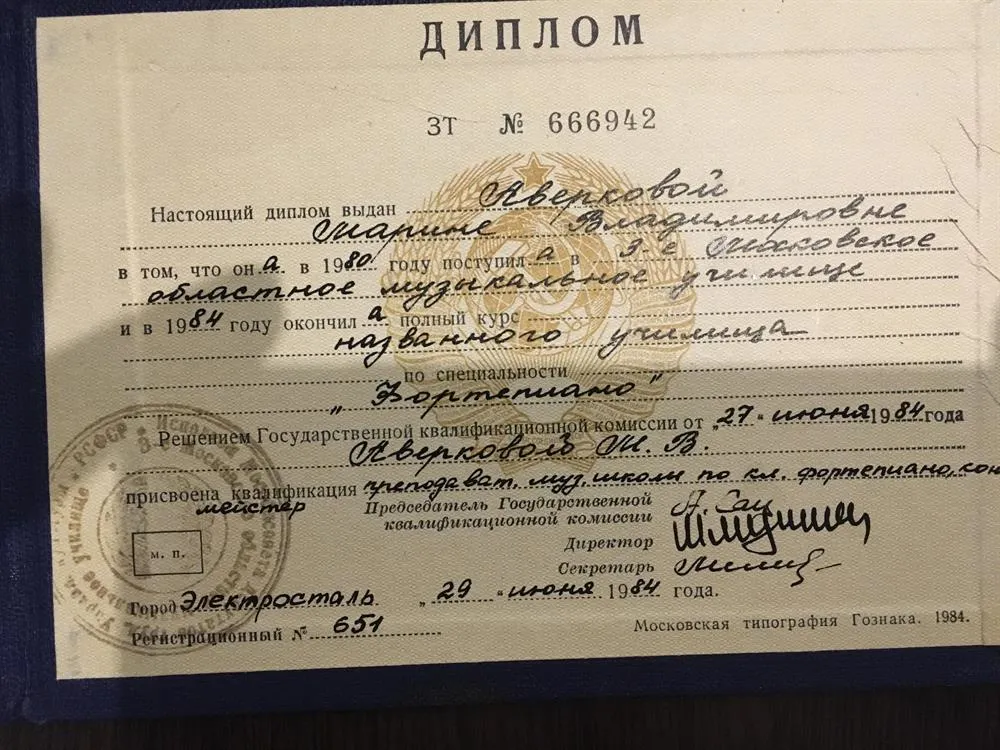 ДИПЛОМ
ЗТ № 666942
Настоящий диплом выдан Аверковой
Марине Владимировне
в том, что он а в 1980 году поступил а в 3-е Московское
областное музыкальное училище
и в 1984 году окончил а полный курс
названного училища
по специальности
„ Фортепиано "
Решением Государственной квалификационной комиссии от „27" июня 1984 года
Аверковой М. В.
присвоена квалификация преподават. муз. школы по кл. фортепиано, кон
мейстер
Председатель Государственной
квалификационной комиссии
Директор
Секретарь
м. п.
Город Электросталь „ 29 " июня 1984 года.
Регистрационный № 651
Московская типография Гознака. 1984.